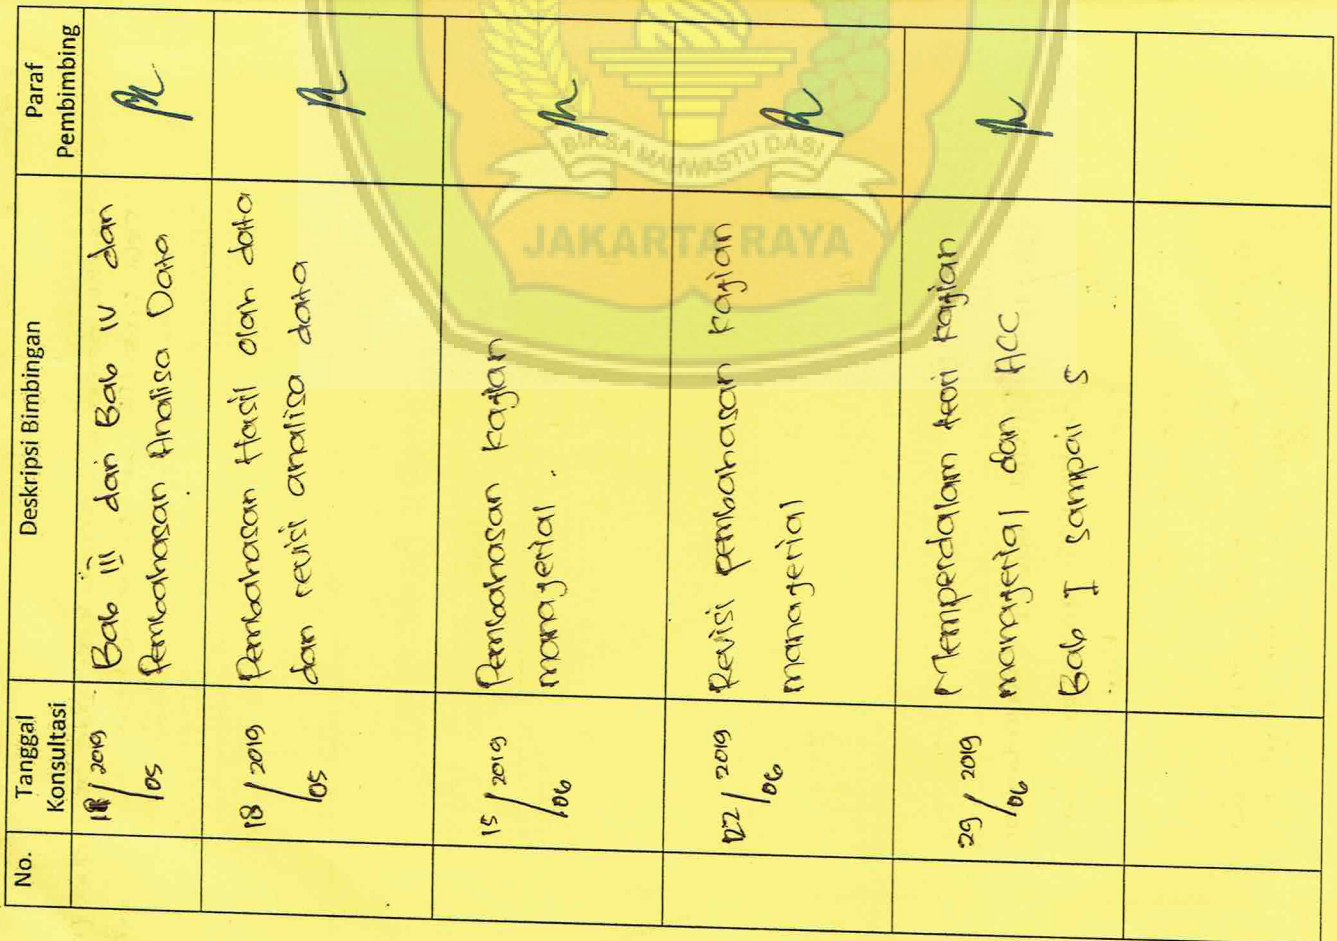 No.
Tanggal
Konsultasi
Deskripsi Bimbingan
Paraf
Pembimbing
/ 2019
05
Bab III dan Bab IV dan
Pembahasan Analisa Data
18 / 2019
05
Pembahasan Hasil olah data
dan revisi analisa data
15 / 2019
06
Pembahasan kajian
managerial.
22 / 2019
06
Revisi pembahasan kajian
managerial
29 / 2019
06
Memperdalam teori kajian
managerial dan ACC
Bab I sampai 5
BIKSA MAHWASTU DASI
JAKARTA RAYA